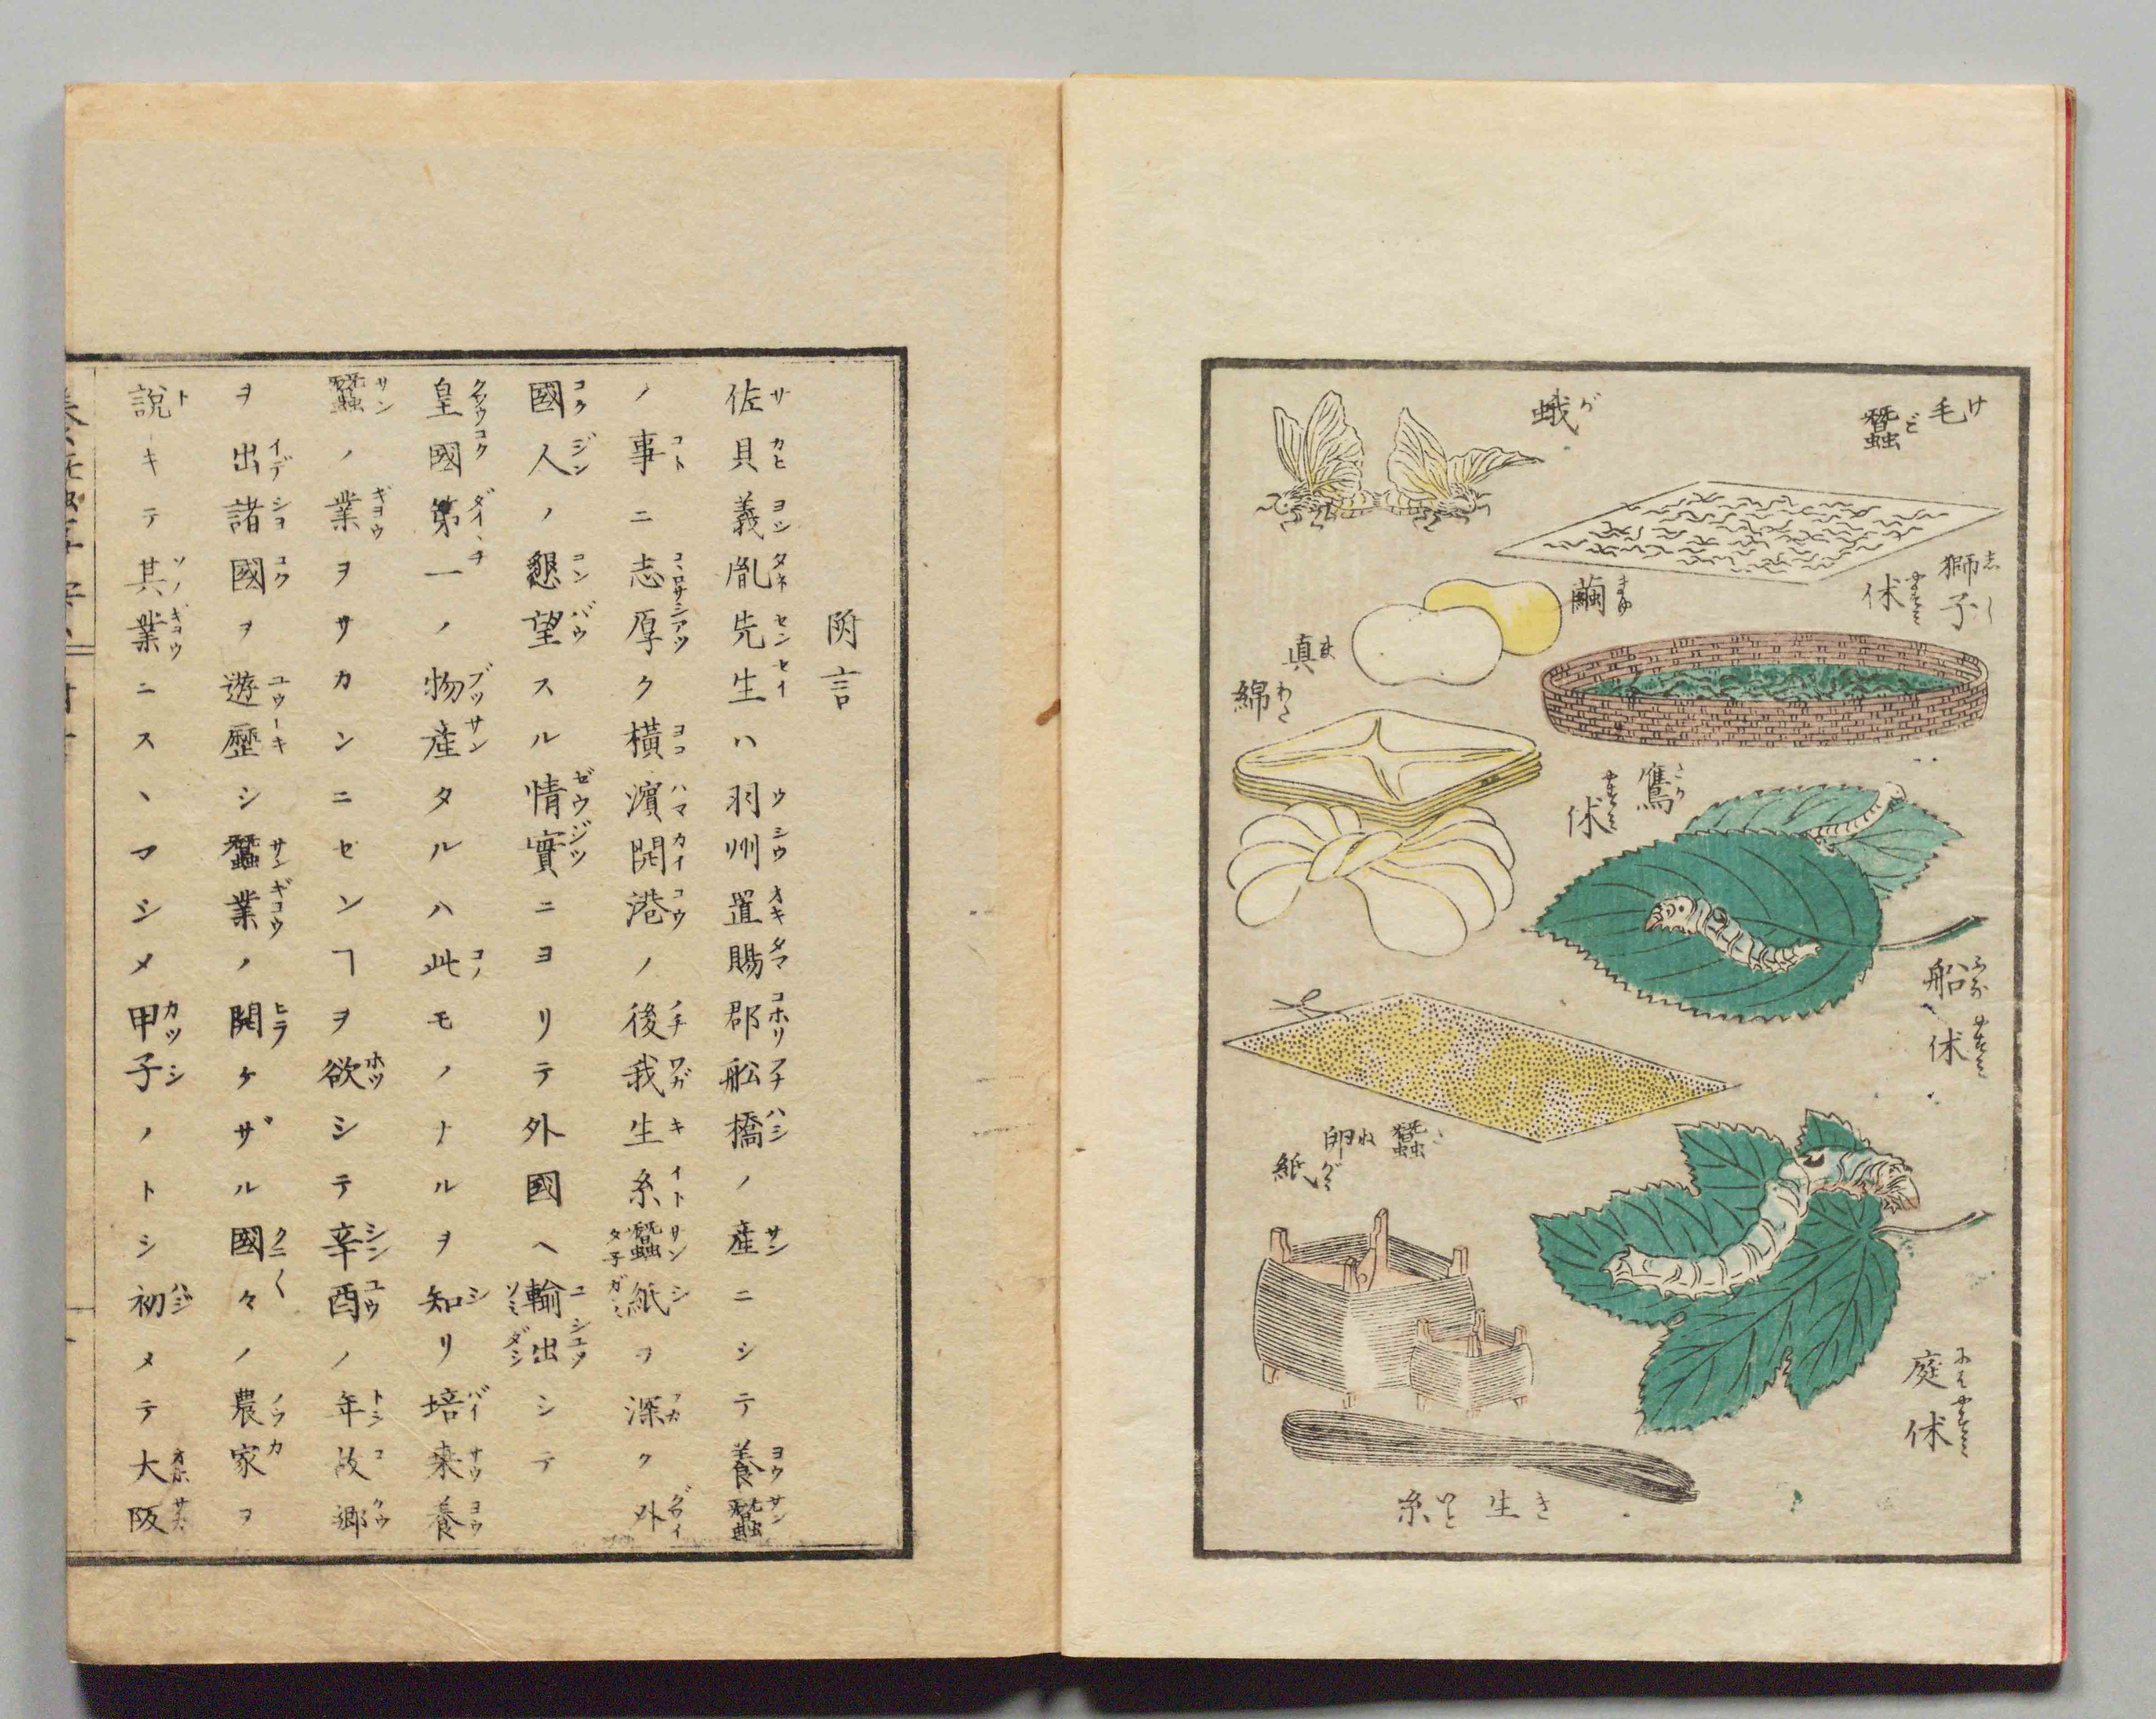 毛蠶
蛾
獅子
休
繭
真綿
鷹
休
船
休
蠶卵紙
庭
休
生糸
附言
佐貝義胤先生ハ羽州置賜郡舩橋ノ産ニシテ養蠶
ノ事ニ志厚ク横濱開港ノ後我生糸蠶紙ヲ深ク外
國人ノ懇望スル情實ニヨリテ外國ヘ輸出シテ
皇國第一ノ物産タルハ此モノナルヲ知リ培桒養
蠶ノ業ヲサカンニセンヿヲ欲シテ辛酉ノ年故郷
ヲ出諸國ヲ遊歷シ蠶業ノ開ケザル國々ノ農家ヲ
說キテ其業ニスヽマシメ甲子ノトシ初メテ大阪